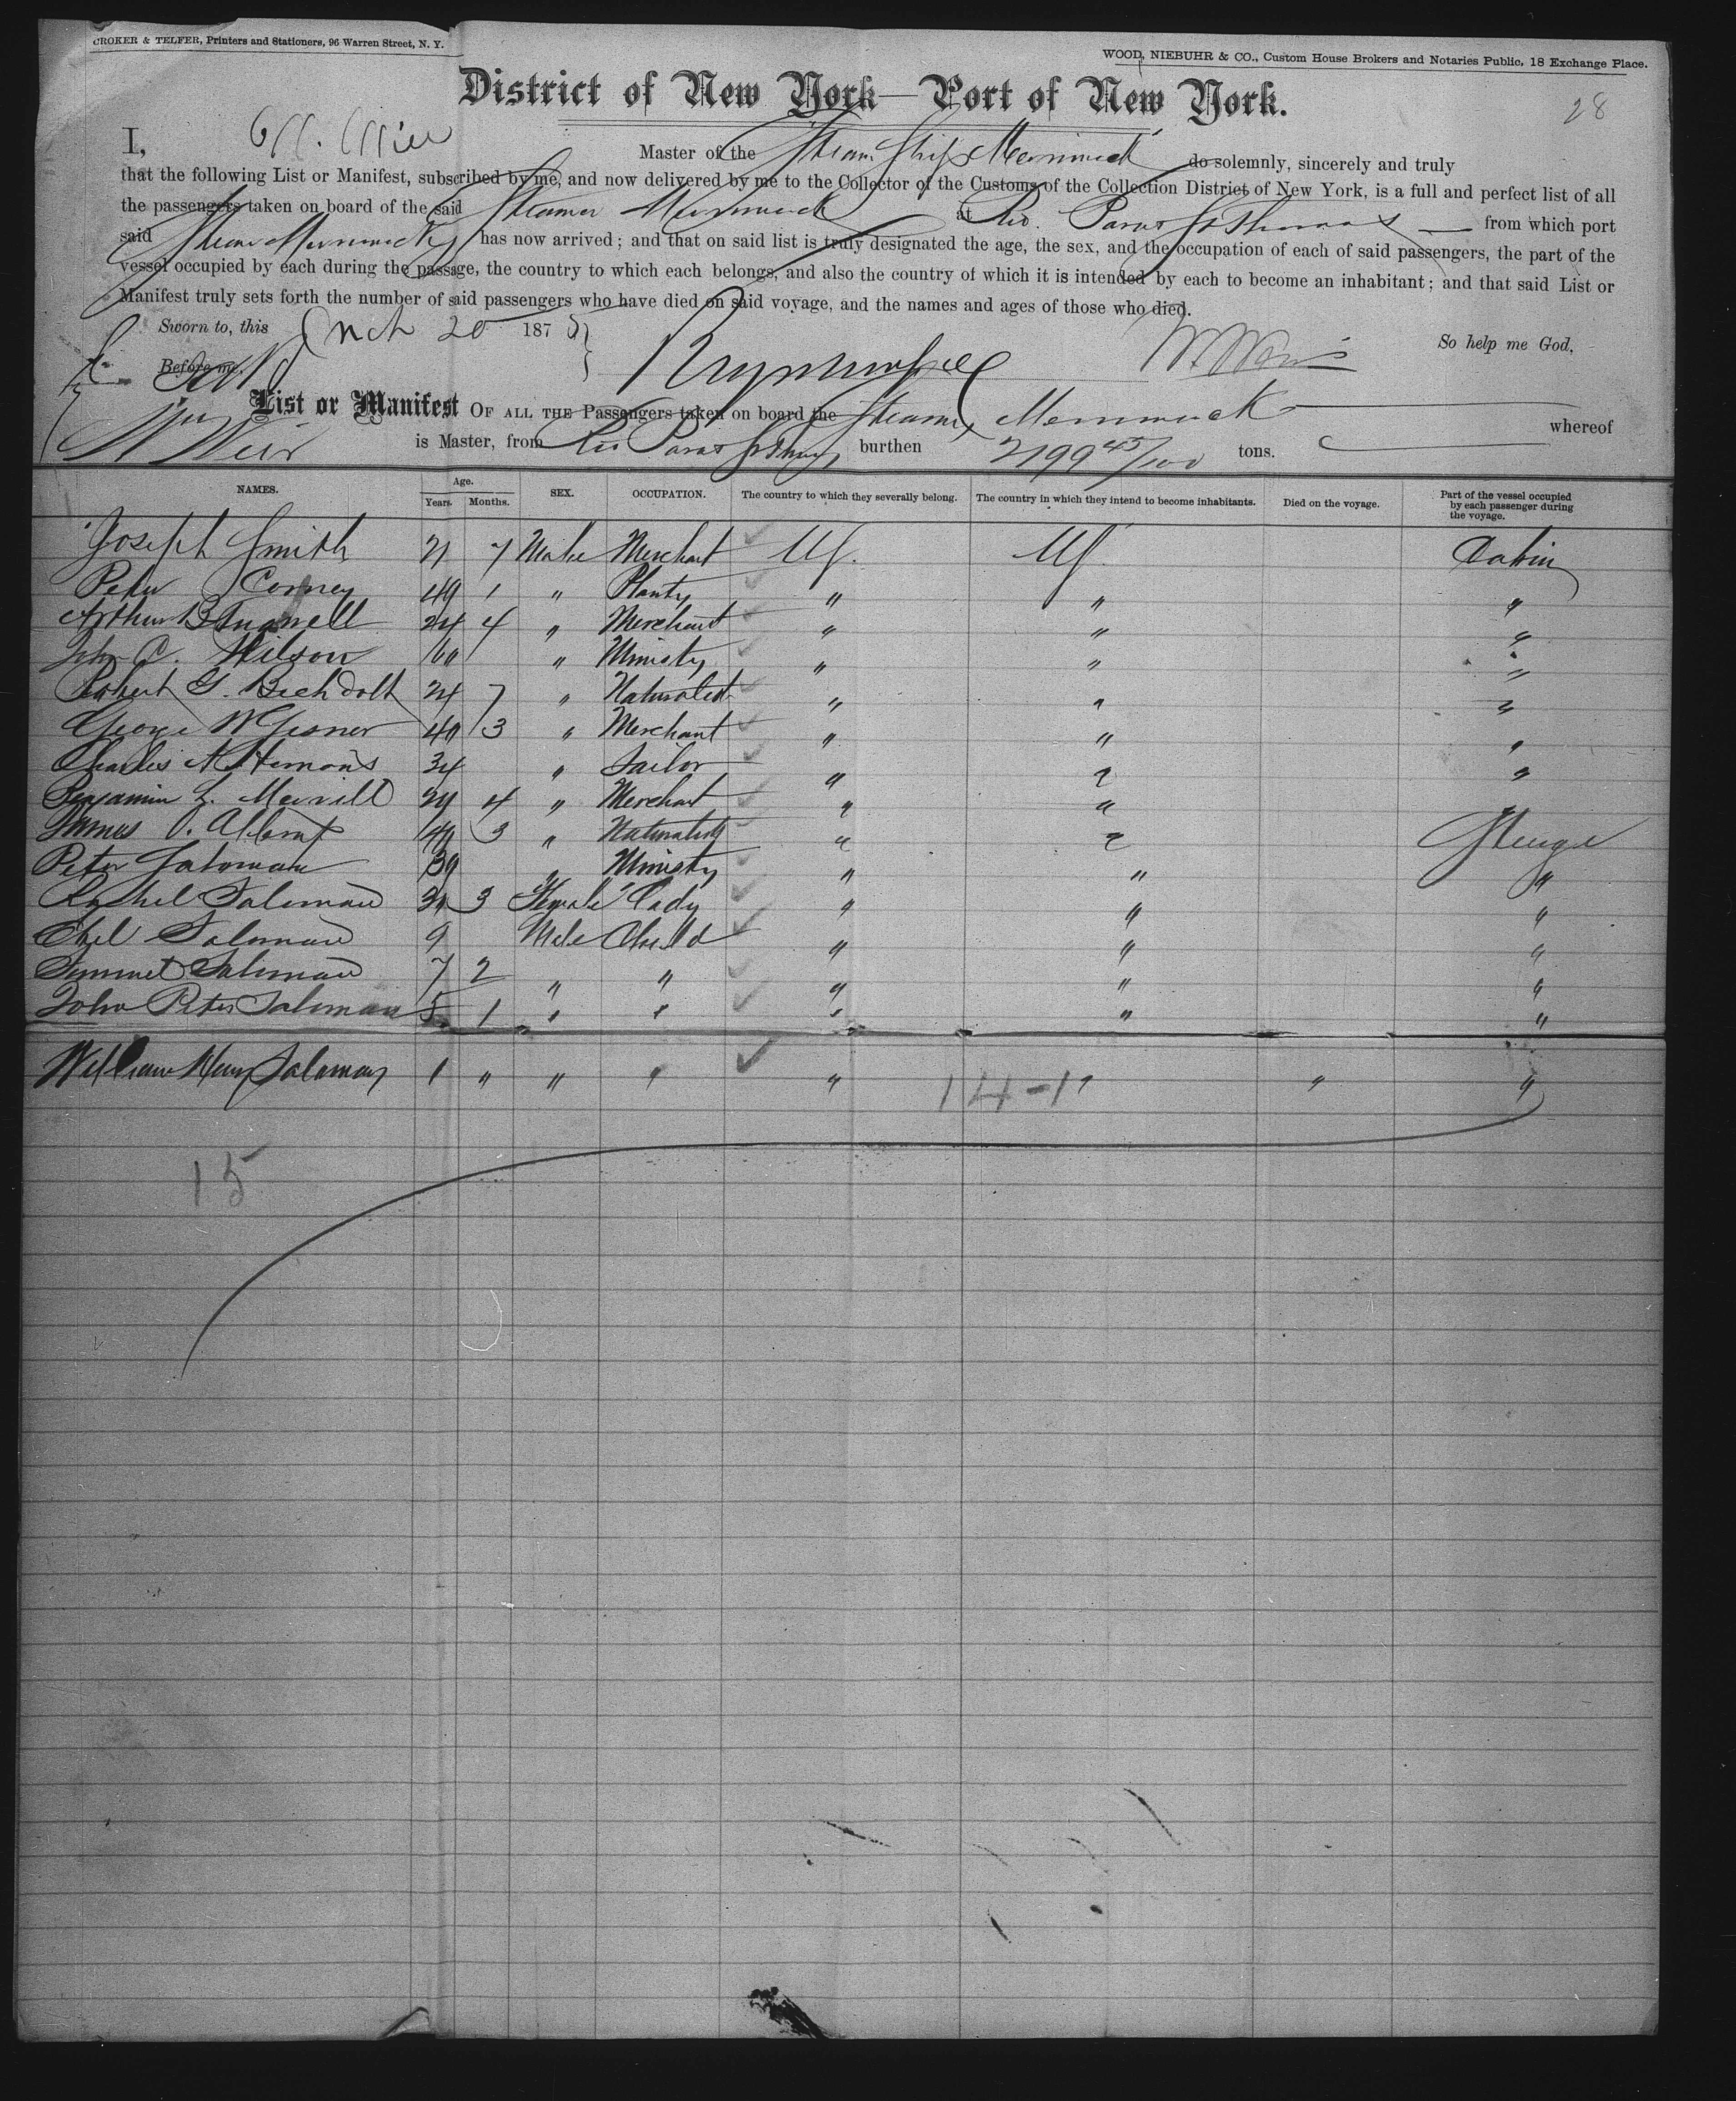 CROKER & TELFER, Printers and Stationers, 96 Warren Street, N. Y.
WOOD, NIEBUHR & CO., Custom House Brokers and Notaries Public, 18 Exchange Place.
District of New York—Port of New York.
28
I, Master of the Steam Ship Merrimack do solemnly, sincerely and truly
that the following List or Manifest, subscribed by me, and now delivered by me to the Collector of the Customs of the Collection District of New York, is a full and perfect list of all
the passengers taken on board of the said Steamer Merrimack at Rio. Para & St Thomas from which port
said Steamer Merrimack has now arrived; and that on said list is truly designated the age, the sex, and the occupation of each of said passengers, the part of the
vessel occupied by each during the passage, the country to which each belongs, and also the country of which it is intended by each to become an inhabitant; and that said List or
Manifest truly sets forth the number of said passengers who have died on said voyage, and the names and ages of those who died.
Sworn to, this Mch 20 187
So help me God,
Before me,
List or Manifest OF ALL THE Passengers taken on board the Steamer Merrimack whereof
Wm Weir is Master, from Rio Para & St Thomas burthen 2199 45/100 tons.
NAMES. Age. Years. Months. SEX. OCCUPATION. The country to which they severally belong. The country in which they intend to become inhabitants. Died on the voyage. Part of the vessel occupied by each passenger during the voyage.
Joseph Smith 21 7 Male Merchant US. US. Cabin
Peter Corney 49 1 " " " "
Arthur B 24 4 " Merchant " " "
John C. Wilson 60 " " " "
Robert G. Bechdolt 24 7 " " " "
George W Gesner 40 3 " Merchant " " "
Charles 34 " Sailor " " "
Benjamin L. Merrill 29 4 " Merchant " " "
James 49 3 " " " Steerage
Peter Saloman 39 " " " "
Rachel Saloman 30 3 Female Lady " " "
Saloman 9 Male Child " " "
Saloman 7 2 " " " " "
John Peter Saloman 5 1 " " " " "
William Henry Saloman 1 " " " " " " "
14-1
15